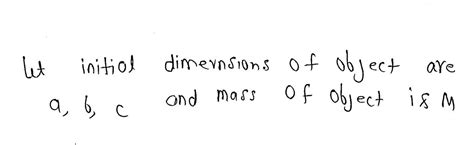 let initial dimevnsions of object are
a, b, c and mass of object is M